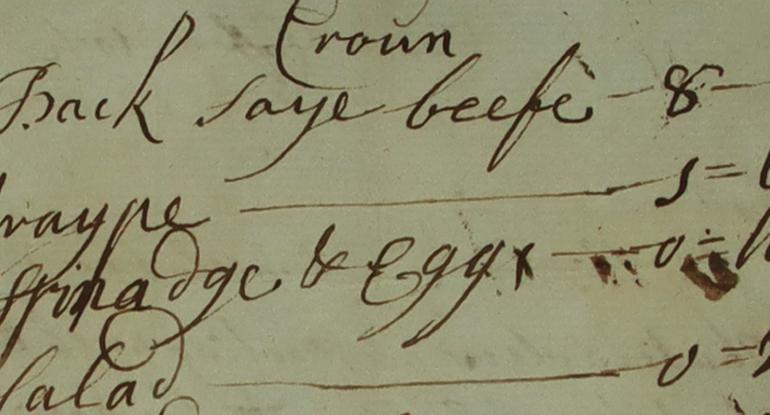 Croun
Back saye beefe — 8 —
raype — 1 =
spinadge & Eggs — 0 =
salad — 0 =